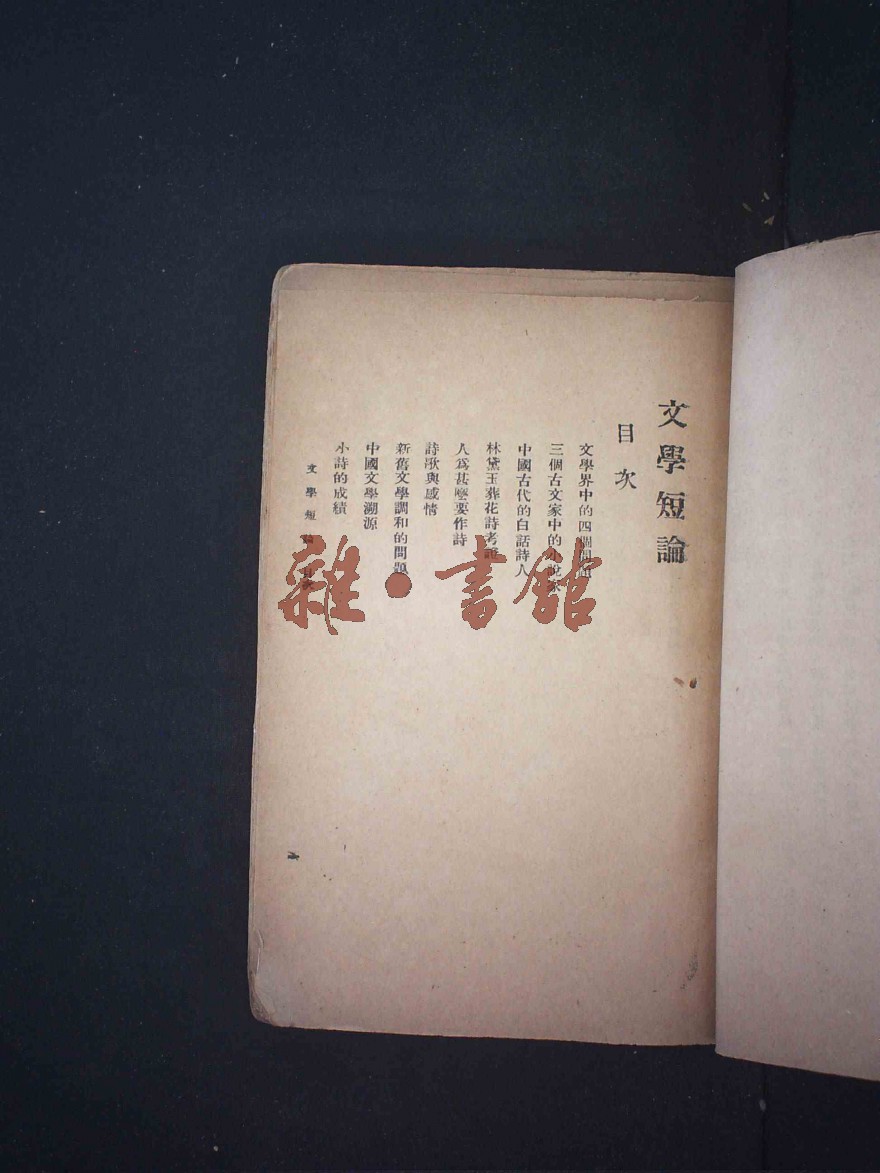 文學短論
目次
文學界中的四個問題
三個古文家中的小說家
中國古代的白話詩人
林黛玉葬花詩考證
人爲甚麼要作詩
詩歌與感情
新舊文學調和的問題
中國文學溯源
小詩的成績
文學短論 目次
雜·書館